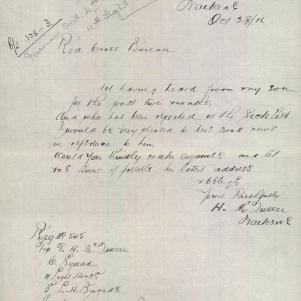 Oct 28/16
Red Cross Bureau
not having heard from my son
for the past two months.
And who has been reported in the Sick List
would be very pleased to hear some news
in reference to him
Would you Kindly make enquiries and let
me know if possible his latest address
& oblige
Yours Faithfully
H. McQueen
Reg No 545
H. McQueen
C Squad
11 Light Horse